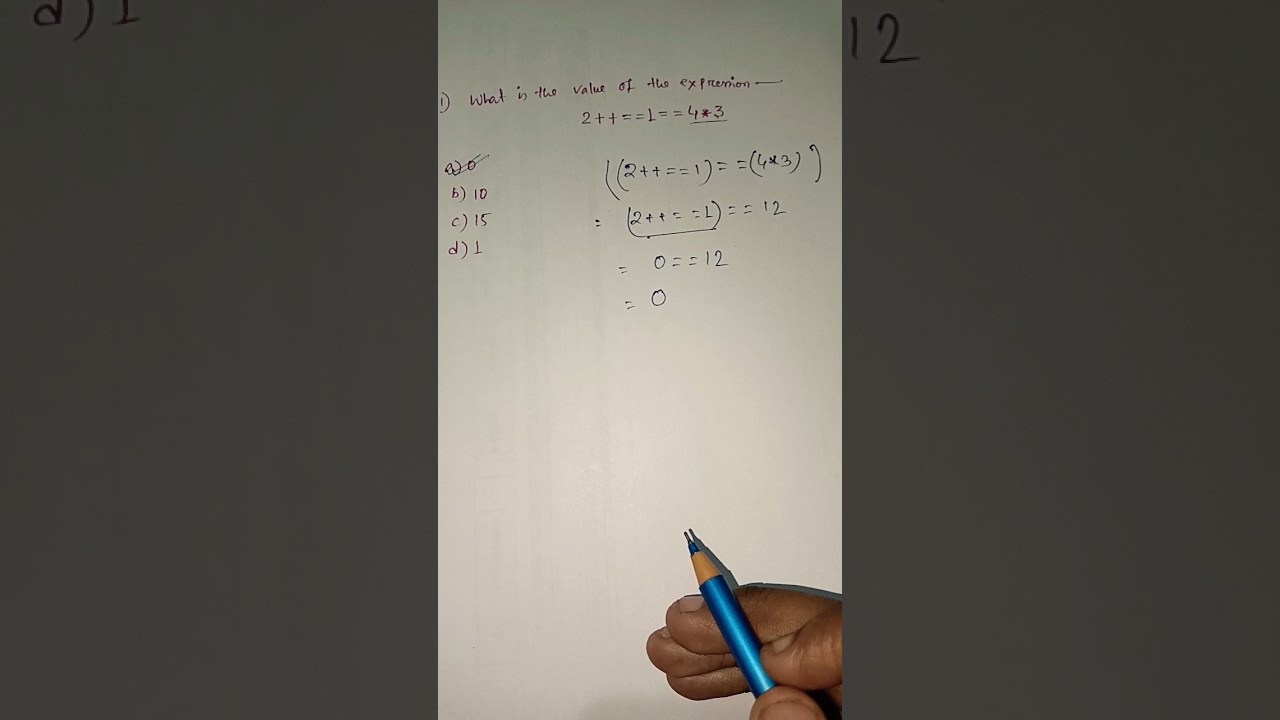 d) 1
12
1) What is the value of the expression —
2++==1==4*3
a) 0
b) 10
c) 15
d) 1
((2++==1)==(4*3))
= (2++==1)==12
= 0==12
= 0